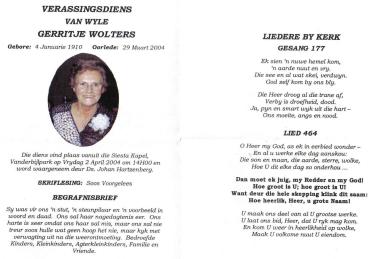 VERASSINGSDIENS
VAN WYLE
GERRITJE WOLTERS
Gebore: 4 Januarie 1910 Oorlede: 29 Maart 2004
Die diens vind plaas vanuit die Siesta Kapel,
Vanderbijlpark op Vrydag 2 April 2004 om 14H00 en
word waargeneem deur Ds. Johan Hartzenberg.
SKRIFLESING: Soos Voorgelees
BEGRAFNISBRIEF
Sy was vir ons 'n stut, 'n steunpilaar en 'n voorbeeld in
woord en daad. Ons sal haar nagedagtenis eer. Ons
harte is seer omdat ons haar sal mis, maar ons sal nie
treur soos hulle wat geen hoop het nie, maar kyk met
verwagting uit na die weerontmoeting. Bedroefde
Kinders, Kleinkinders, Agterkleinkinders, Familie en
Vriende.
LIEDERE BY KERK
GESANG 177
Ek sien 'n nuwe hemel kom,
'n aarde nuut en vry.
Die see en al wat skei, verdwyn.
God self kom by ons bly.
Die Heer droog al die trane af,
Verby is droefheid, dood.
Ja, pyn en smart wyk uit die hart –
Ons moeite, angs en nood.
LIED 464
O Heer my God, as ek in eerbied wonder –
En al u werke elke dag aanskou:
Die son en maan, die aarde, sterre, wolke,
Hoe U dit elke dag so onderhou ...
Dan moet ek juig, my Redder en my God!
Hoe groot is U; hoe groot is U!
Want deur die hele skepping klink dit saam:
Hoe heerlik, Heer, u grote Naam!
U maak ons deel van al U grootse werke.
U laat ons bid, Heer, dat U ryk mag kom.
En kom U weer in heerlikheid op wolke,
Maak U volkome nuut U eiendom.